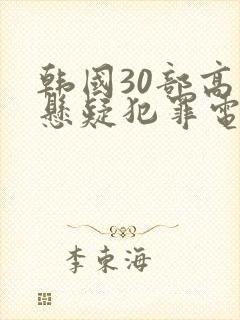 韩国30部高
悬疑犯罪电
李东海